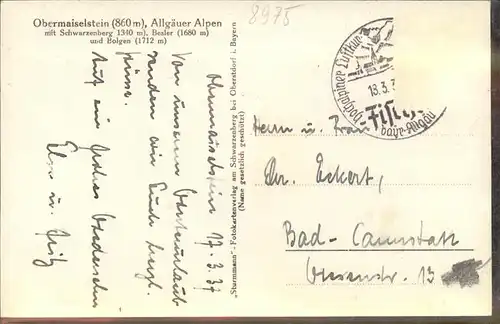 8975
Obermaiselstein (860 m), Allgäuer Alpen
mit Schwarzenberg 1340 m), Besler (1680 m)
und Bolgen (1712 m)
Obermaiselstein 17.3.37
Von unserem
senden wir Euch herzl.
Grüsse.
Auf ein frohes Wiedersehen
u. Fritz
"Sturmmann"-Fotokartenverlag am Schwarzenberg bei Oberstdorf i. Bayern
(Name gesetzlich geschützt)
Hochalpiner Luftkur
18.3.3
Fisch
bayr. Allgäu
Herrn u. Frau
Dr. Eckert,
Bad-Cannstatt
13